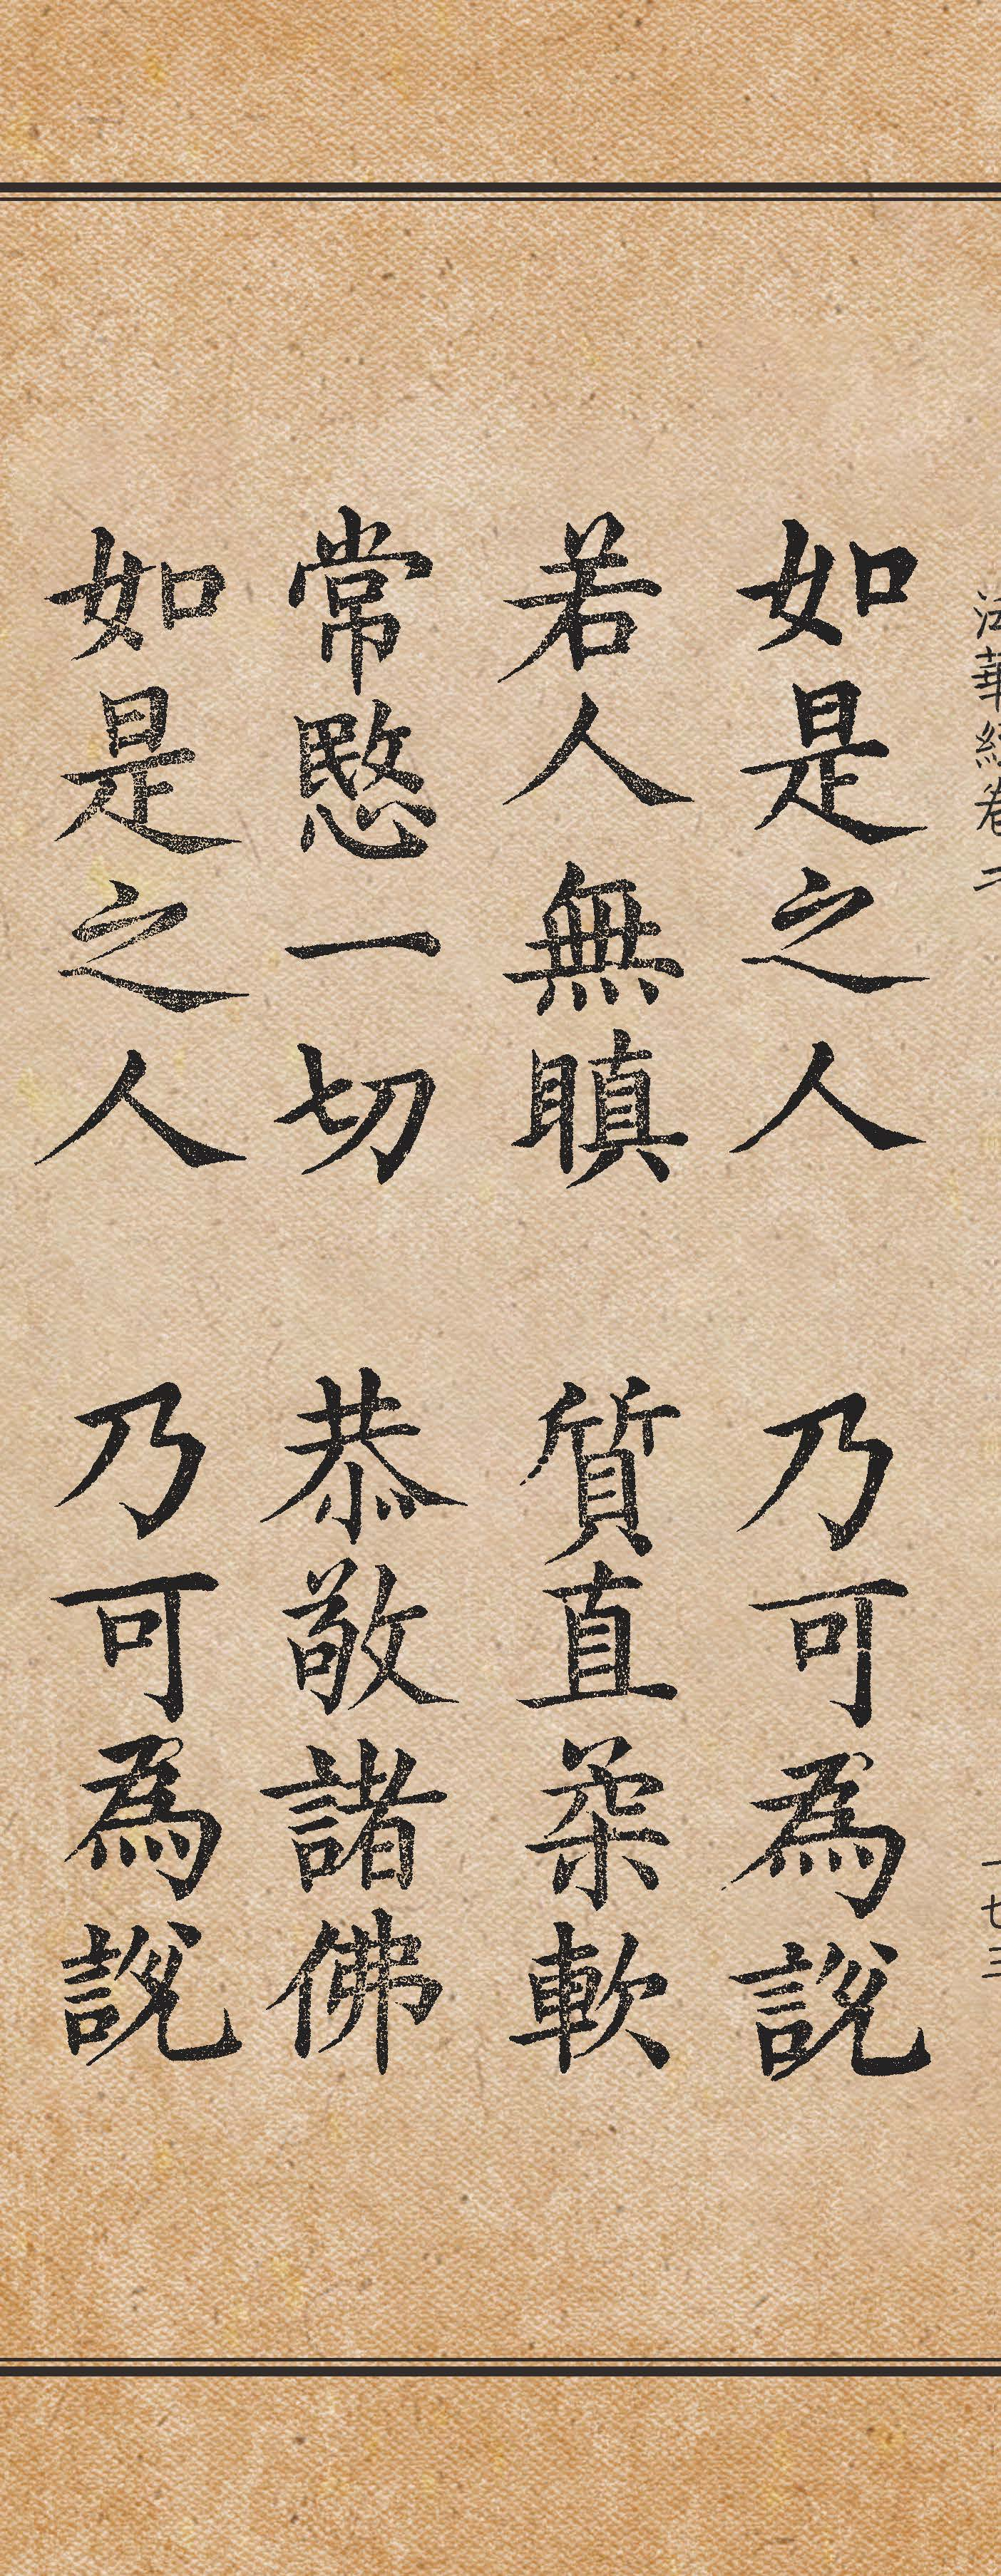 法華經卷二 一七三
如是之人 乃可為說
若人無瞋 質直柔軟
常愍一切 恭敬諸佛
如是之人 乃可為說